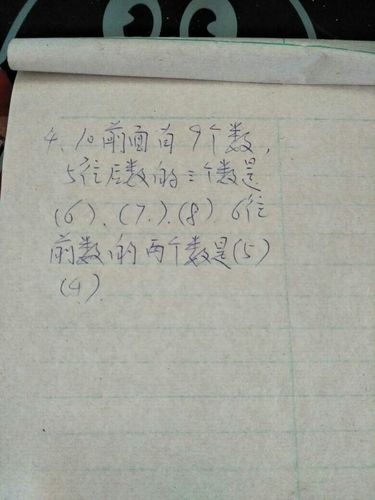 4、10前面有9个数,
5往后数的三个数是
(6)、(7)、(8) 6往
前数的两个数是(5)
(4)